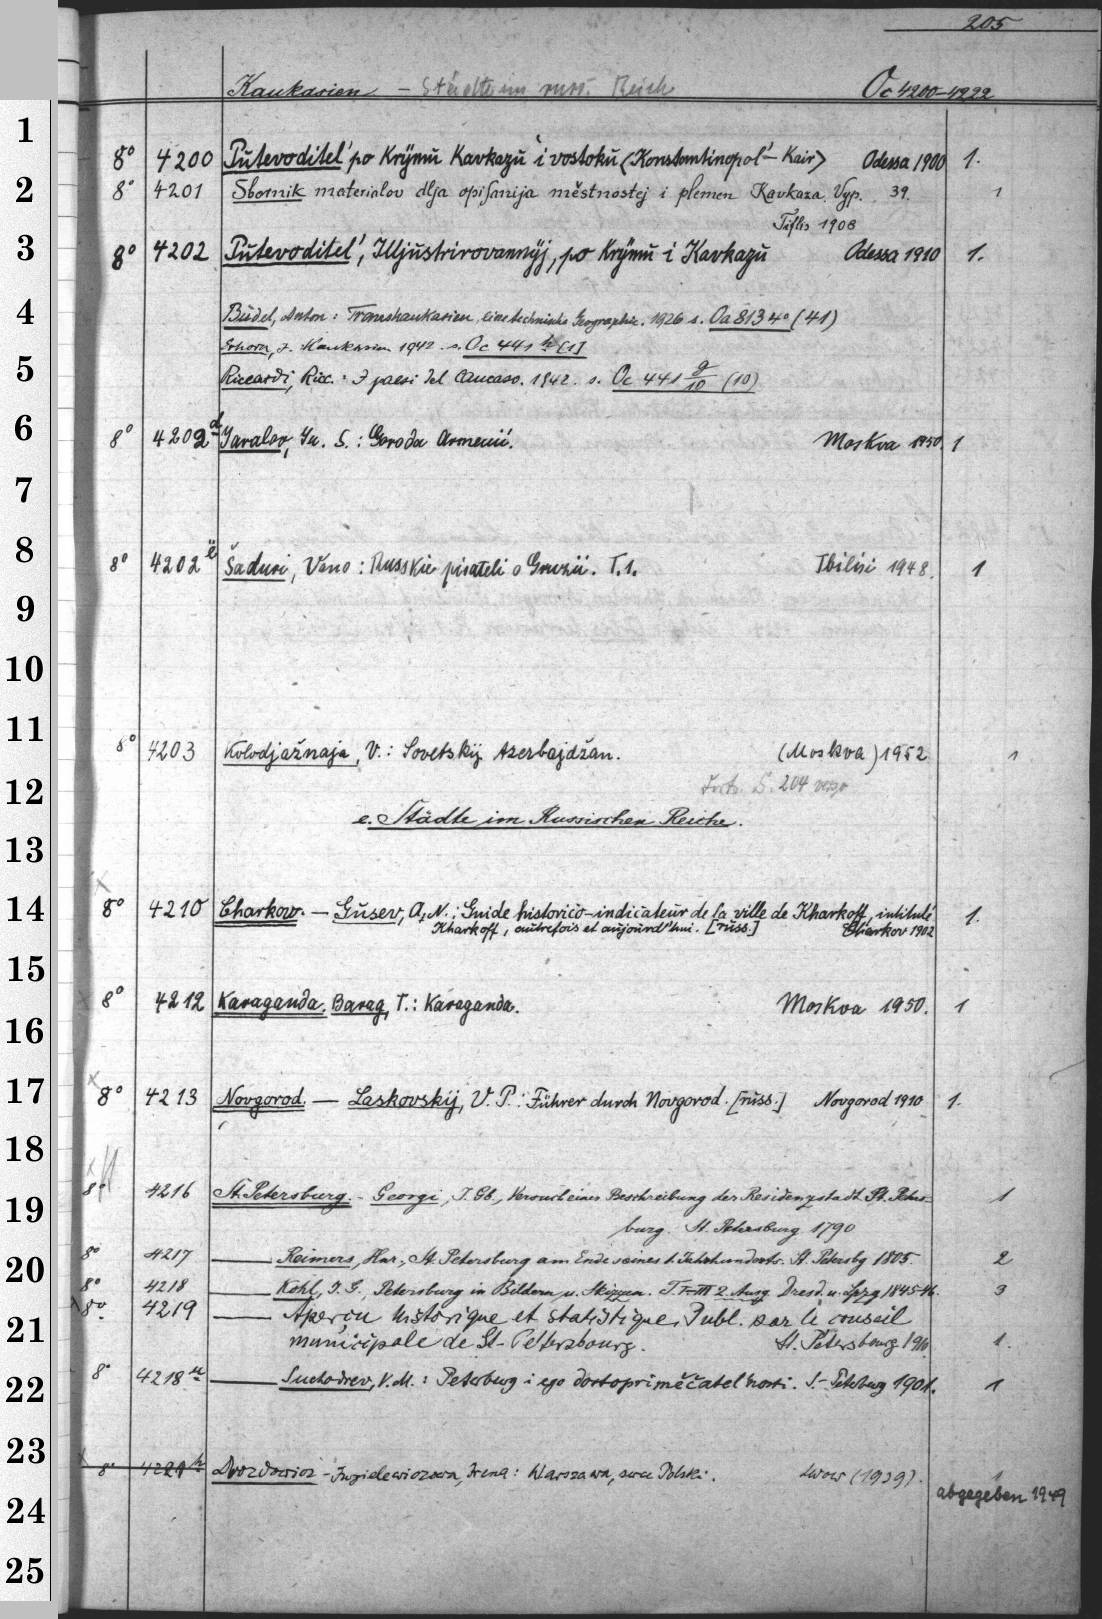 205
Kaukasien – Städte im russ. Reich Oc 4200–4222
1
8° 4200 Pŭtevoditel' po Krÿmŭ Kavkazŭ i vostokŭ (Konstantinopol'– Kair) Odessa 1900 1.
2
8° 4201 Sbornik materialov dlja opisanija městnostej i plemen Kavkaza. Vyp. 39. 1
Tiflis 1908
3
8° 4202 Pŭtevoditel', Illjŭstrirovannyj, po Krÿmŭ i Kavkazŭ Odessa 1910 1.
4
Büdel, Anton: Transkaukasien, eine technische Geographie. 1926 s. Oa 813 4° (41)
Kaukasien 1942. s. Oc 441 h [1]
5
Riccardi, Ricc.: I paesi del Caucaso. 1942. s. Oc 441 g/10 (10)
6
8° 4202 d Jaralov, Ju. S.: Goroda Armenii. Moskva 1950. 1
7
8
8° 4202 e Šaduri, Vano: Russkie pisateli o Gruzii. T.1. Tbilisi 1948. 1
9
10
11
8° 4203 Kolodjažnaja, V.: Sovetskij Azerbajdžan. (Moskva) 1952 1
12
Forts. S. 204 verso
e. Städte im Russischen Reiche.
13
14
8° 4210 Charkow. — Gŭsev, A. N.: Guide historico-indicateur de la ville de Kharkoff, intitulé 1.
Kharkoff, autrefois et aujourd'hui. [rŭss.] Charkov 1902
15
8° 4212 Karaganda. Barag, T.: Karaganda. Moskva 1950. 1
16
17
8° 4213 Novgorod. — Laskovskij, V. P.: Führer durch Novgorod. [rŭss.] Novgorod 1910 1.
18
19
8° 4216 St. Petersburg. - Georgi, J. Gb., Versuch einer Beschreibung der Residenzstadt St. Peters- 1
burg. St. Petersburg 1790
20
8° 4217 — Reimers, Hnr., St. Petersburg am Ende seines 1. Jahrhunderts. St. Petersbg 1805. 2
8° 4218 — Kohl, J. G., Petersburg in Bildern u. Skizzen. T. I–III 2. Ausg. Dresd. u. Lpzg 1845-46. 3
8° 4219 — Aperçu historique et statistique. Publ. par le conseil
21
municipale de St-Pétersbourg. St. Petersbourg 1910. 1.
22
8° 4218 a — Suchodrev, V. M.: Peterburg i ego dostoprimečatel'nosti. S.-Peterburg 1901. 1
23
8° Drozdowicz-Jurgielewiczowa, Irena: Warszawa, serce Polski. Lwow (1939). 1
abgegeben 1949
24
25